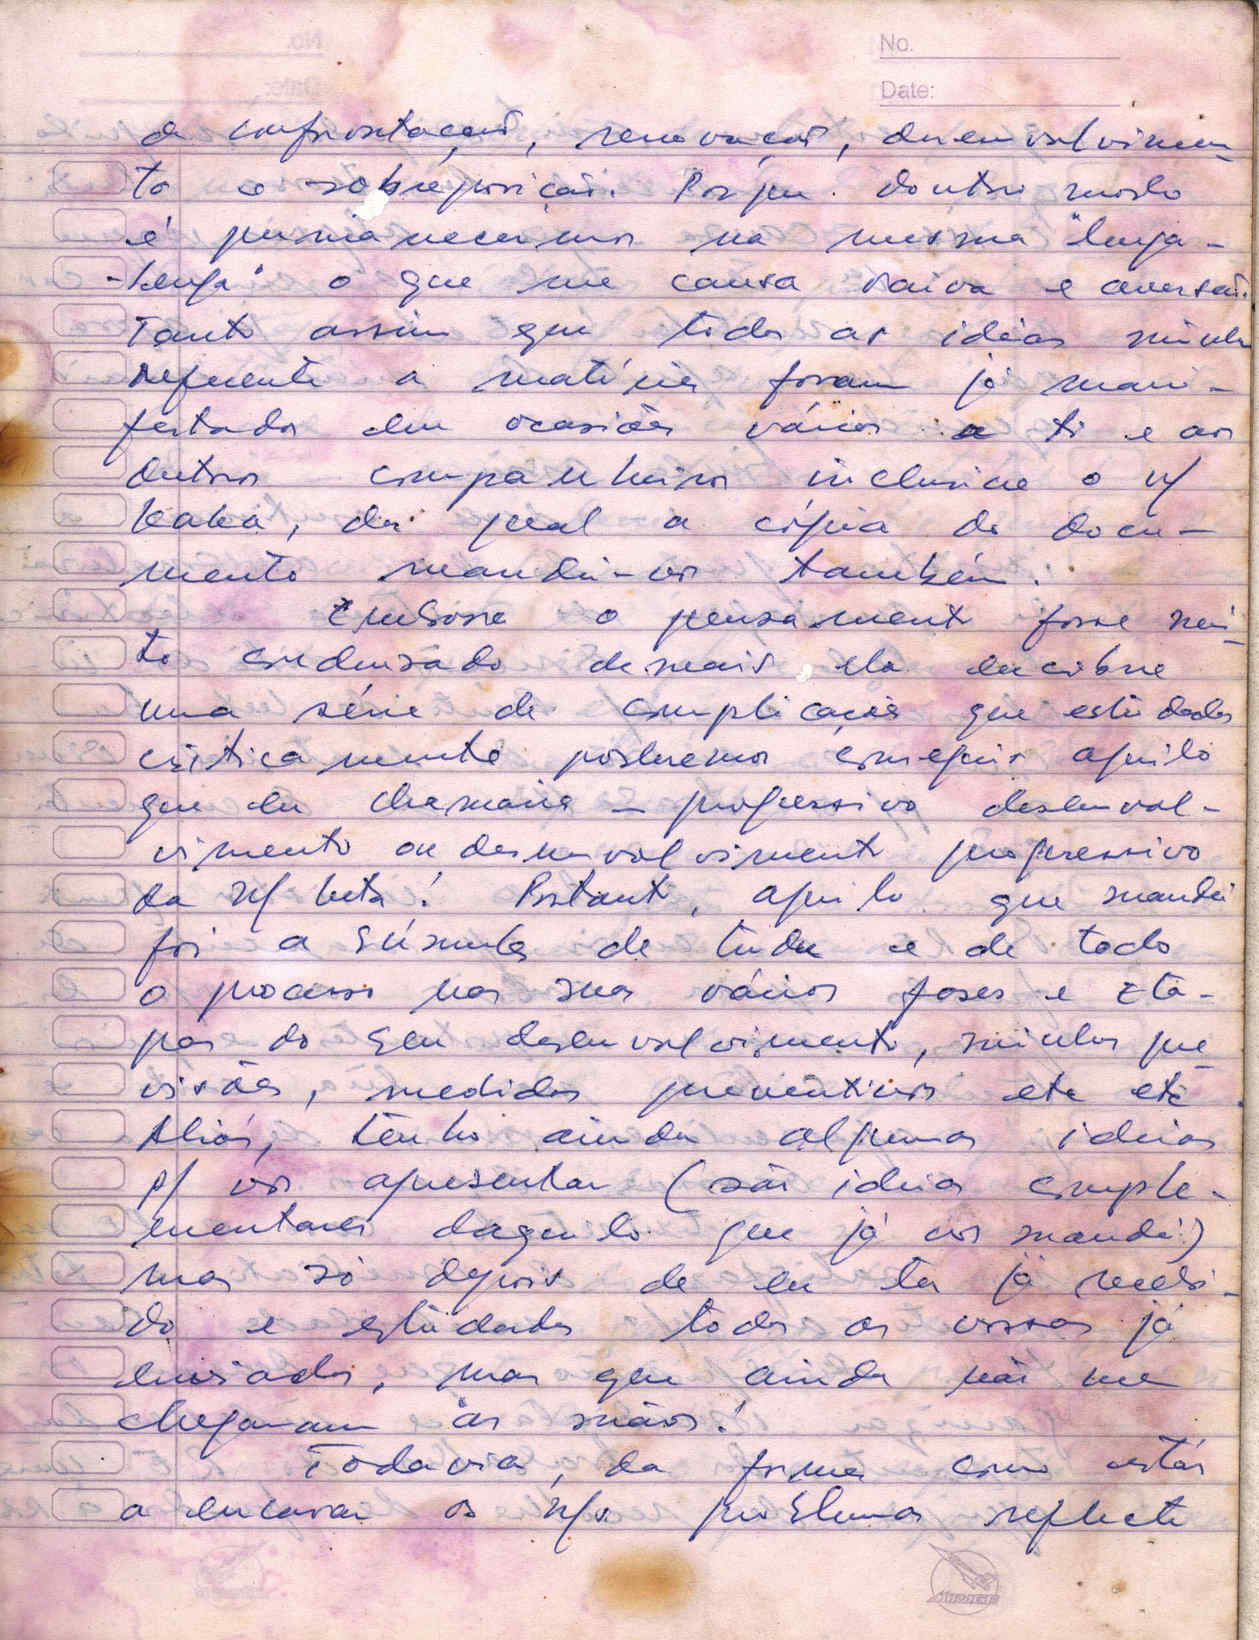 No.
Date:
de confrontação, renovação, desenvolvimen-
to e sobreposição. Porque doutro modo
é permanecermos na mesma "lenga-
-lenga" o que me causa raiva e aversão.
Tanto assim que todas as idéias minhas
referente a matéria foram já mani-
festadas em ocasiões várias a ti e aos
outros companheiros inclusive o n/
Kaka, da qual a cópia do docu-
mento mandei-vos também.
Embora o pensamento fosse mui-
to condensado demais, ela encobre
uma série de complicações que estudadas
criticamente poderemos conseguir aquilo
que eu chamaria - progressivo desenvol-
vimento ou desenvolvimento progressivo
da n/ luta! Portanto, aquilo que mandei
foi a súmula de tudo e de todo
o processo nas suas várias fases e eta-
pas do seu desenvolvimento, minhas pre-
visões, medidas preventivas etc etc.
Aliás, tenho ainda algumas idéias
p/ vos apresentar (são idéias comple-
mentares daquilo que já vos mandei)
mas só depois de eu ter já recebi-
do e estudado todas as vossas já
enviadas, mas que ainda não me
chegaram às mãos!
Todavia, da forma como estás
a encarar os n/s problemas reflecte